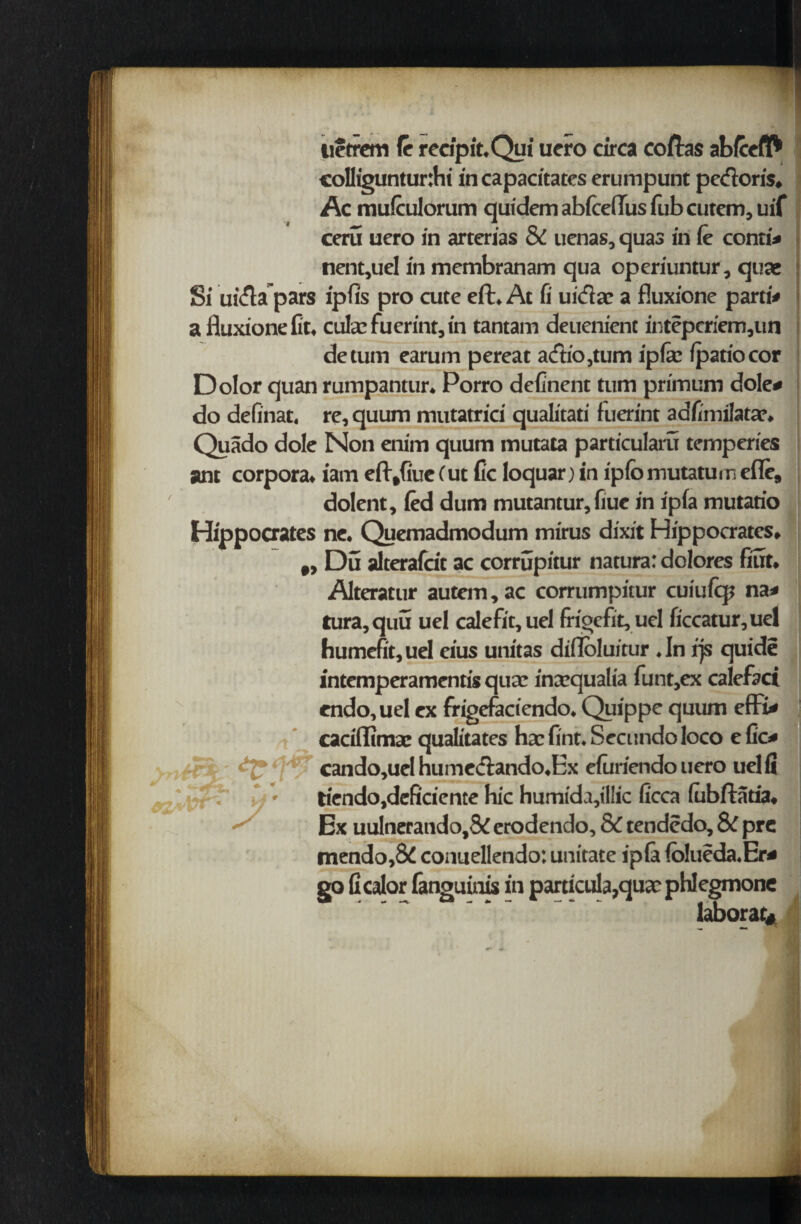 uētrem ſe recipit. Qui uero circa coſtas abſceſſ⁹
colliguntur:hi in capacitates erumpunt pectoris.
Ac muſculorum quidem abſceſſus ſub cutem, uiſ
cerū uero in arterias & uenas, quas in ſe conti-
nent,uel in membranam qua operiuntur, quæ
Si uicta pars ipſis pro cute eſt. At ſi uictæ a fluxione parti-
a fluxione fit. culæ fuerint, in tantam deuenient intēperiem,un
de tum earum pereat actio,tum ipſæ ſpatio cor
Dolor quan rumpantur. Porro deſinent tum primum dole-
do deſinat. re, quum mutatrici qualitati fuerint adſimilatæ.
Quādo dole Non enim quum mutata particularū temperies
ant corpora. iam eſt,ſiue (ut ſic loquar) in ipſo mutatum eſſe,
dolent, ſed dum mutantur, ſiue in ipſa mutatio
Hippocrates ne. Quemadmodum mirus dixit Hippocrates.
„ Dū alteraſcit ac corrūpitur natura: dolores fiūt.
Alteratur autem, ac corrumpitur cuiuſqꝫ na-
tura, quū uel calefit, uel frigefit, uel ſiccatur, uel
humefit, uel eius unitas diſſoluitur . In ijs quidē
intemperamentis quæ inæqualia ſunt,ex calefaci
endo, uel ex frigefaciendo. Quippe quum effi-
caciſſimæ qualitates hæ ſint. Secundo loco e ſic-
cando,uel humectando. Ex eſuriendo uero uel ſi
tiendo,deficiente hic humida,illic ſicca ſubſtātia.
Ex uulnerando,& erodendo, & tendēdo, & pre
mendo,& conuellendo: unitate ipſa ſoluēda. Er-
go ſi calor ſanguinis in particula,quæ phlegmone
laborat,